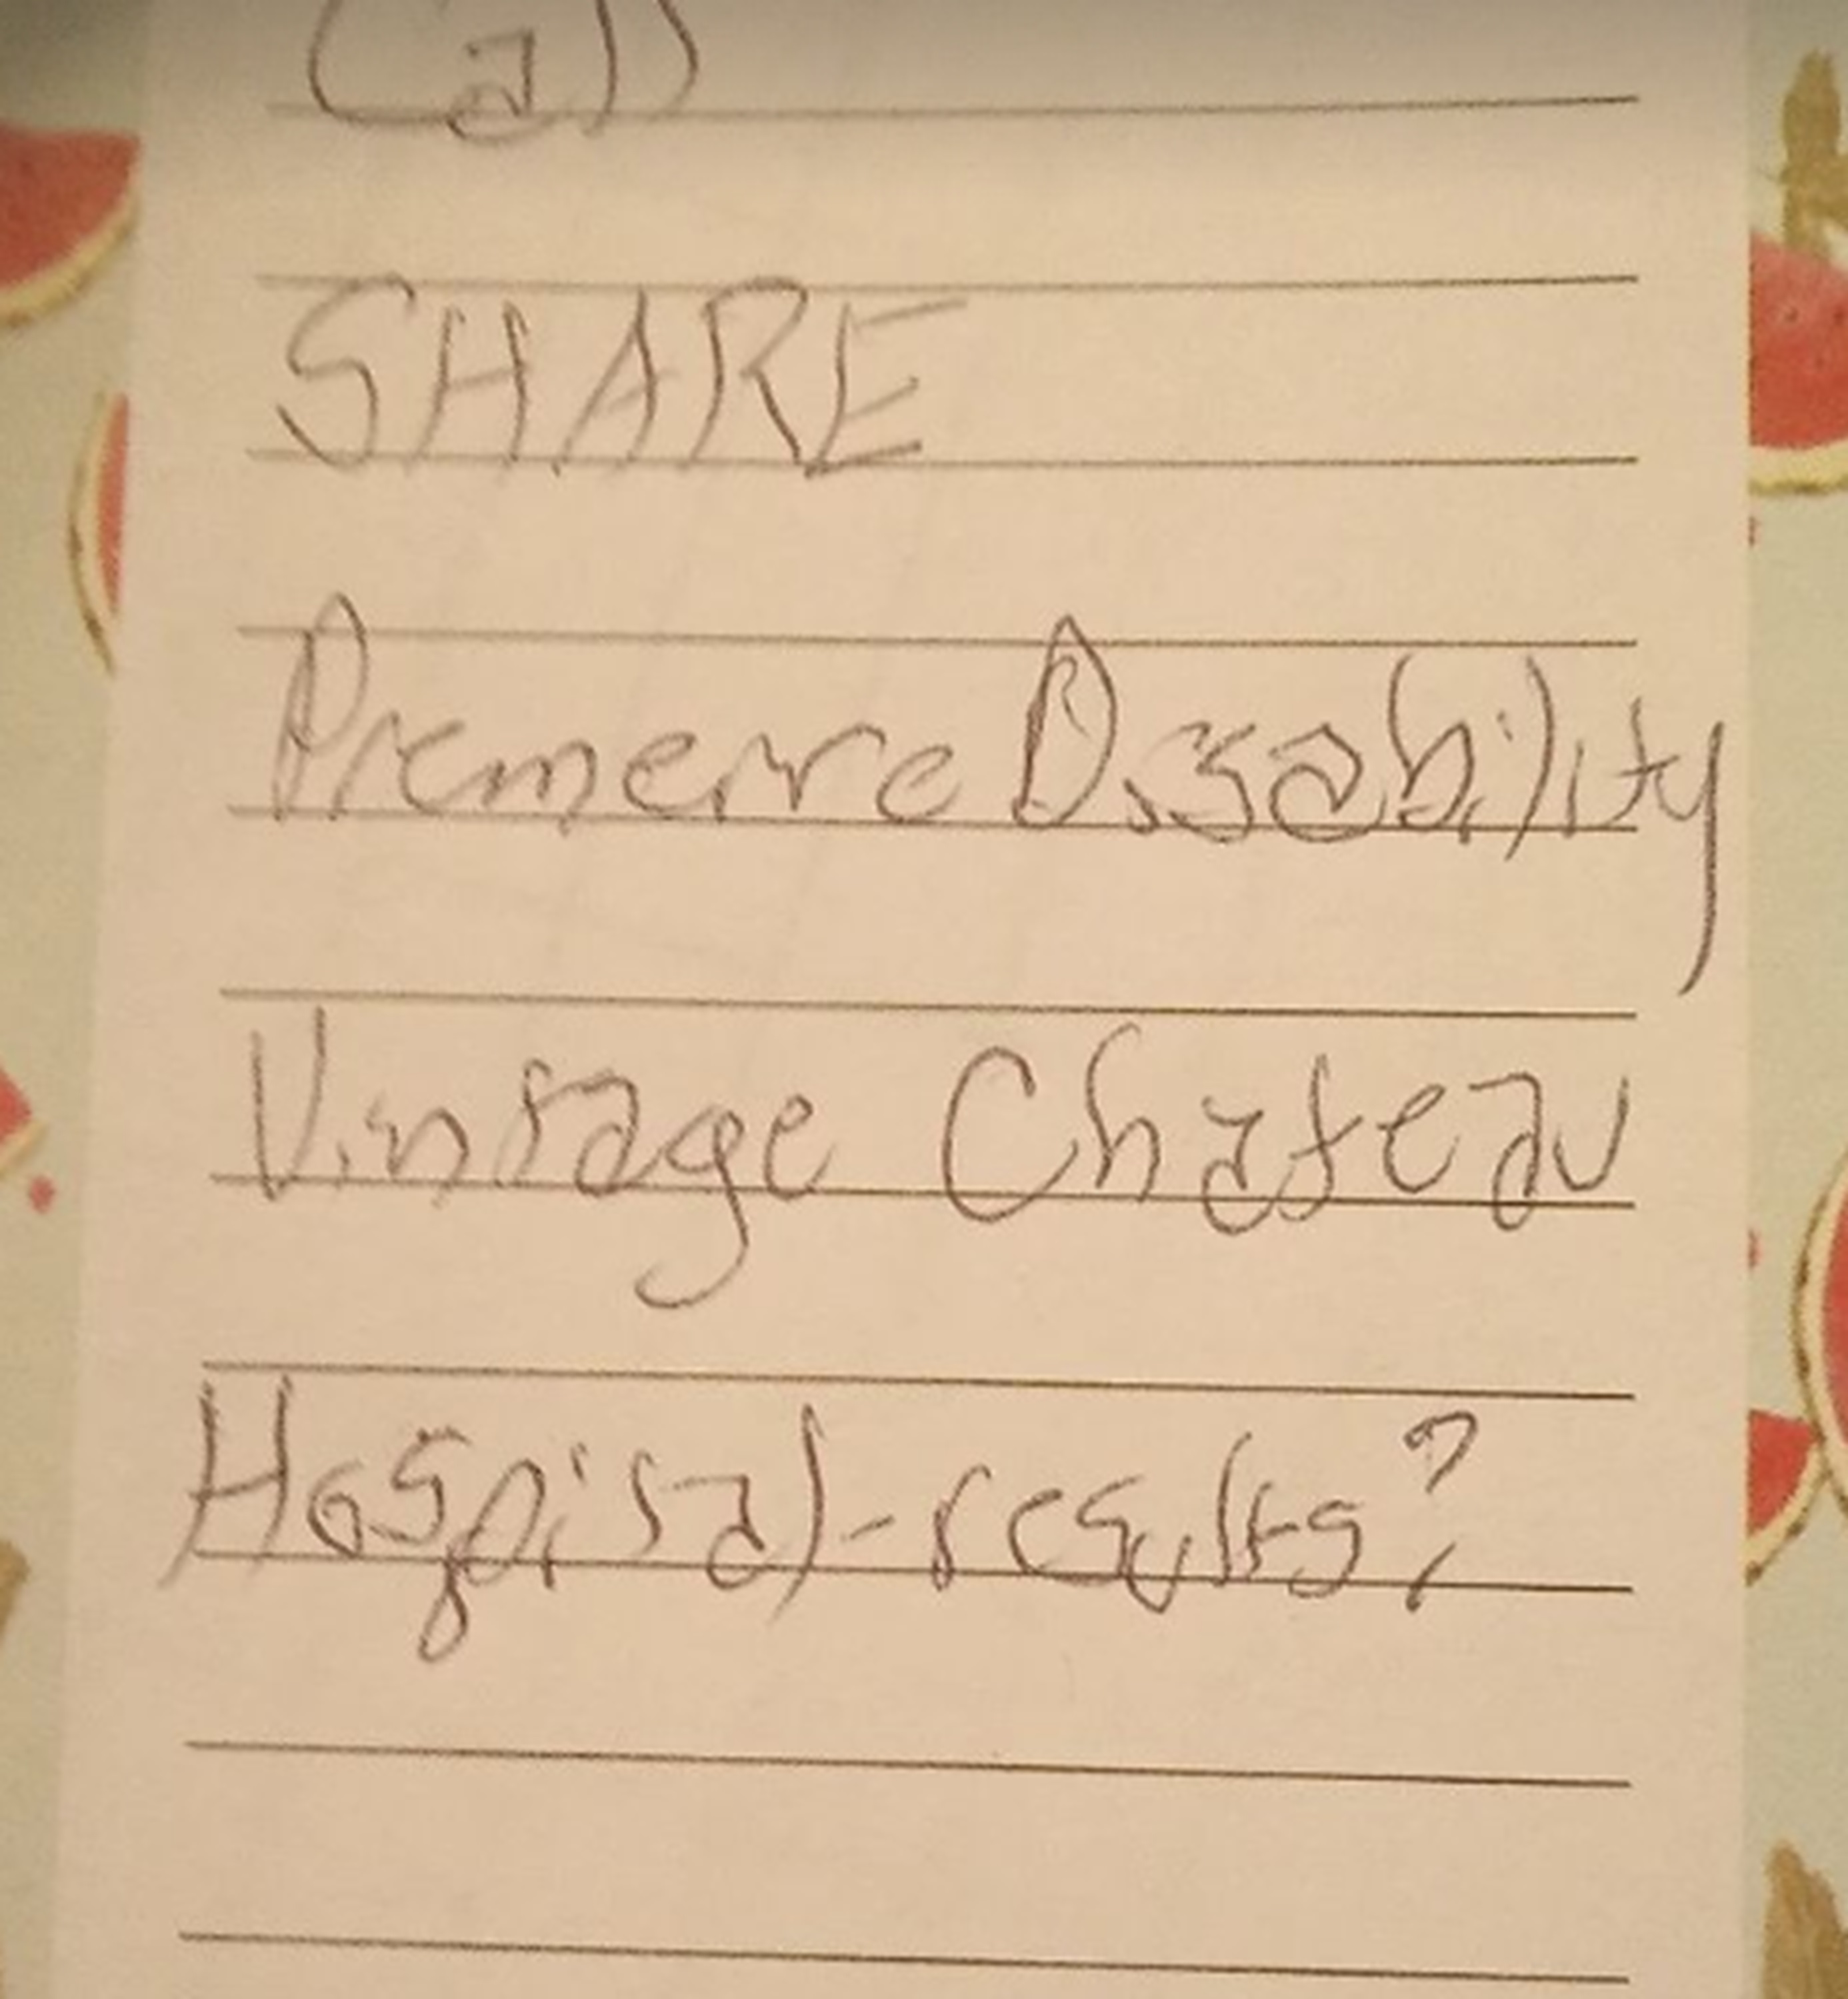 Call
SHARE
Premerre Disability
Vintage Chateau
Hospital-results?